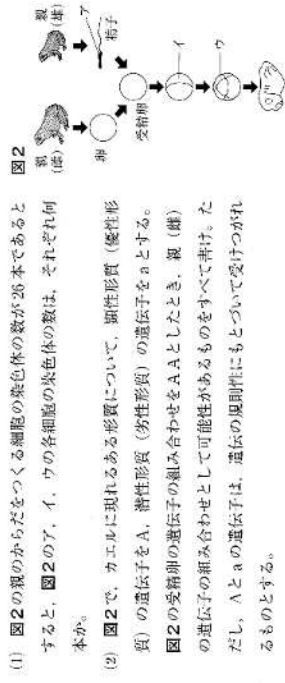 (1) 図2の親のからだをつくる細胞の染色体の数が26本であると
すると，図2のア，イ，ウの各細胞の染色体の数は，それぞれ何
本か。
(2) 図2で，カエルに現れるある形質について，顕性形質（優性形
質）の遺伝子をA，潜性形質（劣性形質）の遺伝子をaとする。
図2の受精卵の遺伝子の組み合わせをAAとしたとき，親（雌）
の遺伝子の組み合わせとして可能性があるものをすべて書け。た
だし，Aとaの遺伝子は，遺伝の規則性にもとづいて受けつがれ
るものとする。
図2
親
(雌)
親
(雄)
卵
ア
精子
受精卵
イ
ウ